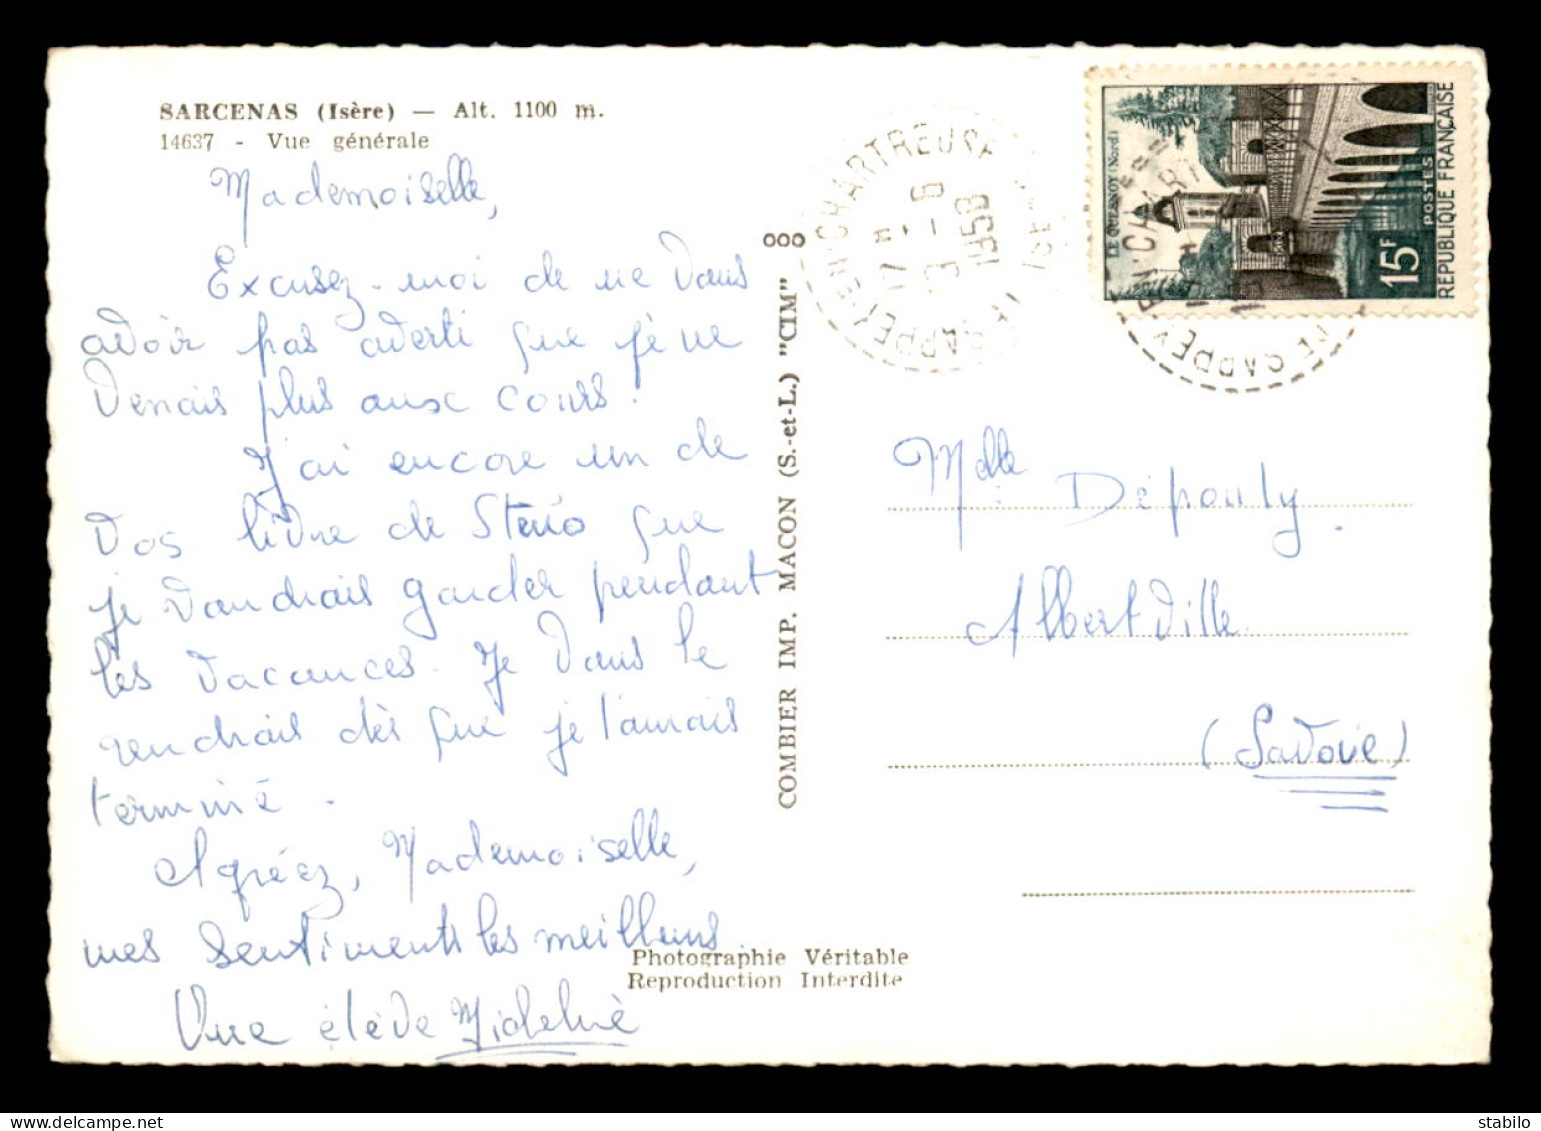 SARCENAS (Isère) — Alt. 1100 m.
14637 - Vue générale
Mademoiselle,
Excusez-moi de ne vous
avoir pas averti que je ne
venais plus aux cours.
J'ai encore un de
vos livre de Sténo que
je voudrais garder pendant
les vacances. Je vous le
rendrais dès que je l'aurais
terminé.
Agréez, Mademoiselle,
mes sentiments les meilleurs
Une élève Micheline
Photographie Véritable
Reproduction Interdite
COMBIER IMP. MACON (S.-et-L.) "CIM"
LE SAPPEY EN CHARTREUSE
17 H
-6
1958
LE QUESNOY (Nord)
15F
POSTES
REPUBLIQUE FRANÇAISE
LE SAPPEY EN CHART
Melle Dépouly.
Albertville
(Savoie)
stabilo